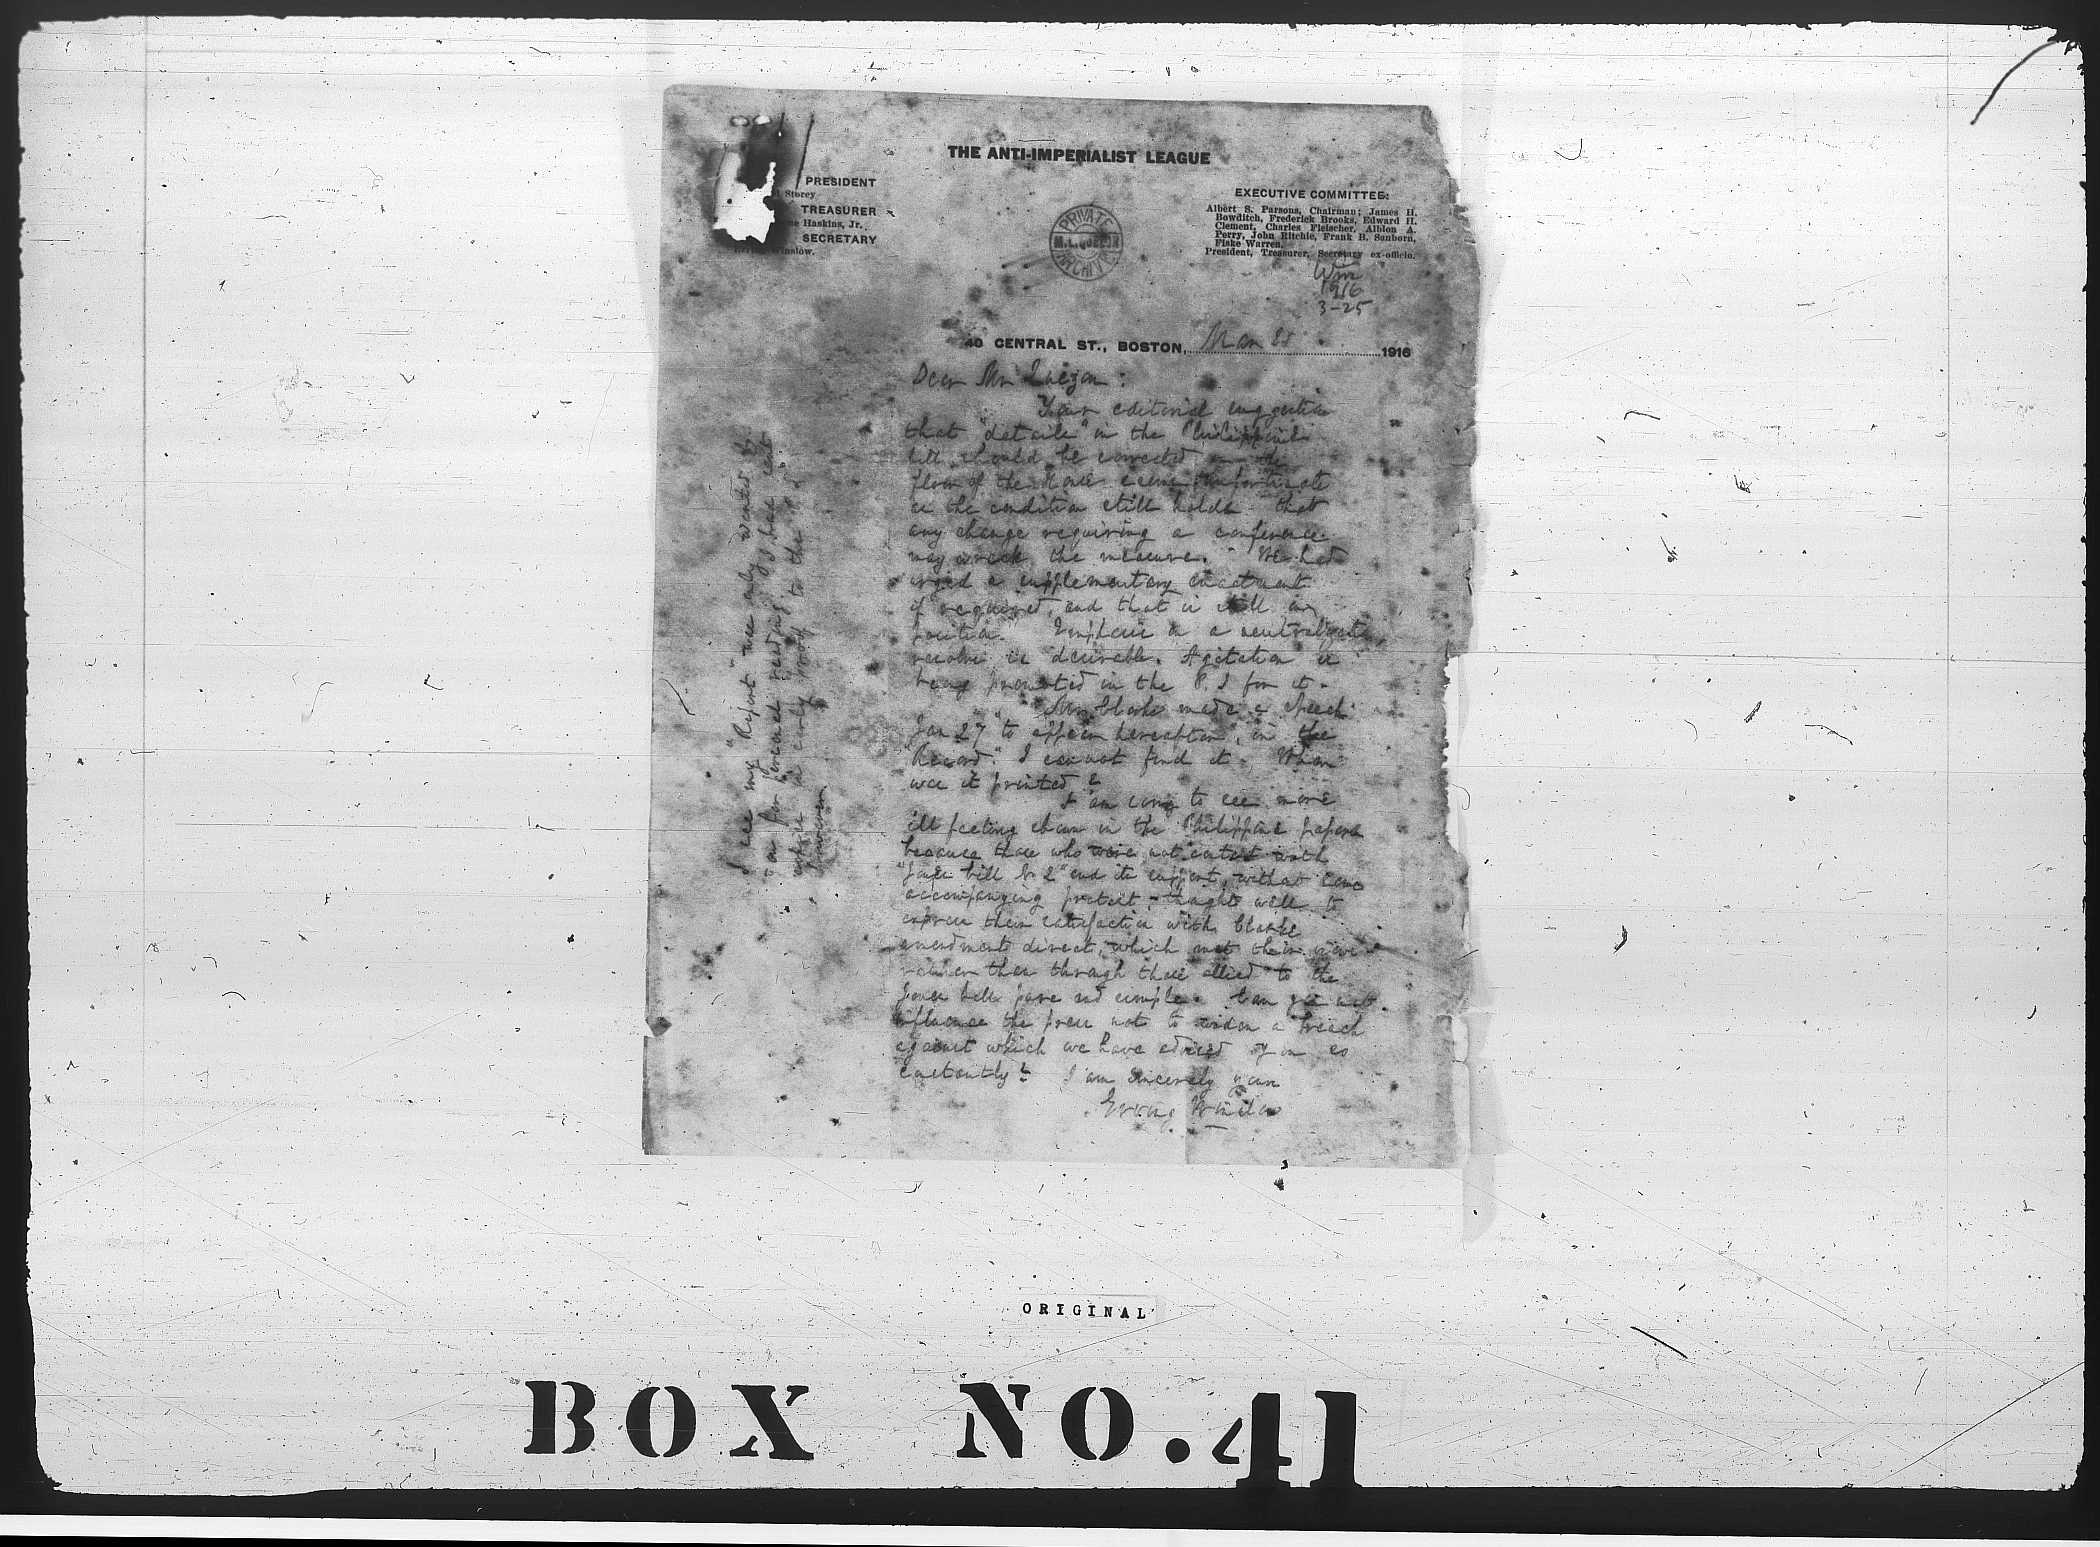 THE ANTI-IMPERIALIST LEAGUE
PRESIDENT
Storey
TREASURER
Haskins, Jr.
SECRETARY
Winslow.
EXECUTIVE COMMITTEE:
Albert S. Parsons, Chairman; James H.
Bowditch, Frederick Brooks, Edward H.
Clement, Charles Fleischer, Albion A.
Perry, John Ritchie, Frank B. Sanborn,
Fiske Warren.
President, Treasurer, Secretary ex-officio.
PRIVATE
M. L. QUEZON
ARCHIVE
1916
3-25
40 CENTRAL ST., BOSTON, Mar 25 1916
Dear Mr Quezon:
Your editorial suggestion
that "details" in the Philippine
bill should be corrected on the
floor of the House seems unfortunate
as the condition still holds that
any change requiring a conference
may wreck the measure. We had
urged a supplementary enactment
if required, and that is still my
position. Emphasis on a neutralization
resolve is desirable. Agitation is
being promoted in the P. I for it.
Mr Clarke made a speech
Jan 27 "to appear hereafter" in the
"Record." I cannot find it. When
was it printed?
I am sorry to see more
ill feeling shown in the Philippine papers
because those who were not content with
"Jones bill No 2" and its support, without some
accompanying protest, thought well to
express their satisfaction with Clarke
amendment direct, which met their views
rather than through those allied to the
Jones bill pure and simple. Can you not
influence the press not to widen a breach
against which we have advised you so
constantly? I am sincerely yours
Erving Winslow
I see my "Report" was only wanted by
you for personal reading. I had sent
an early proof to the
however.
ORIGINAL
BOX NO. 41